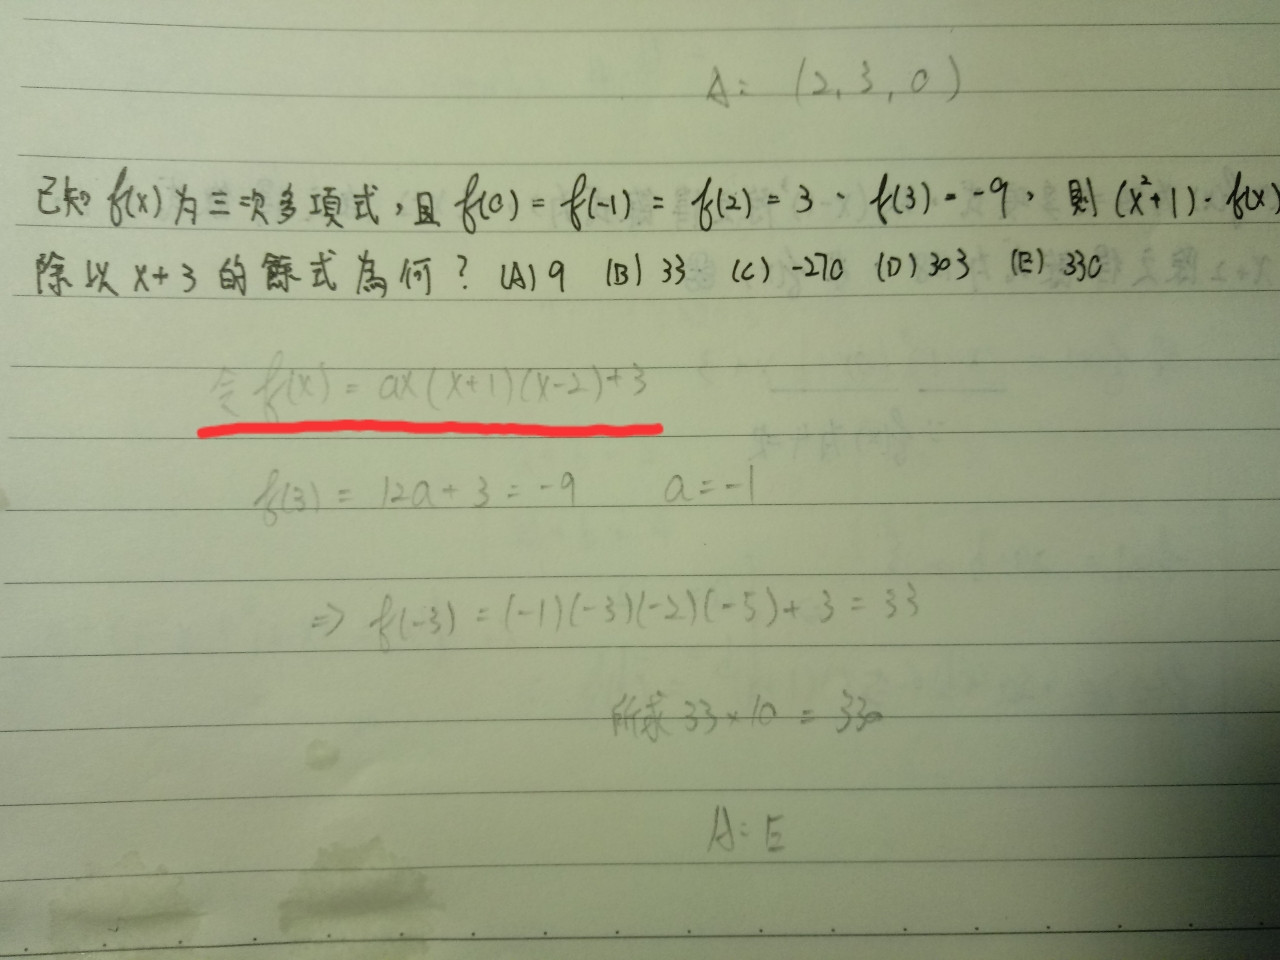 A: (2, 3, 0)
已知 f(x) 為三次多項式，且 f(0) = f(-1) = f(2) = 3、f(3) = -9，則 (x²+1)·f(x)
除以 x+3 的餘式為何？ (A) 9 (B) 33 (C) -270 (D) 303 (E) 330
令 f(x) = ax(x+1)(x-2)+3
f(3) = 12a + 3 = -9 a = -1
⇒ f(-3) = (-1)(-3)(-2)(-5) + 3 = 33
所求 33×10 = 330
A: E